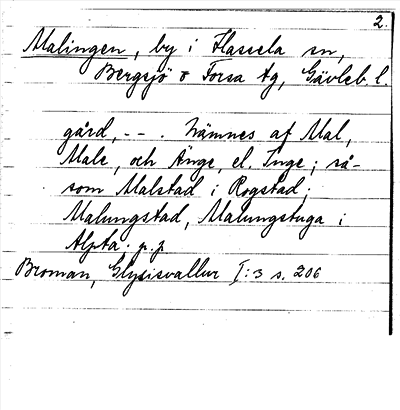 2.
Malingen, by i Hassela sn,
Bergsjö o Forsa tg, Gävleb. l.
gård, - - . Nämnes af Mal,
Male, och Änge, el. Inge; så-
som Malstad i Rogstad;
Malungstad, Malungstuga i
Alfta. p.p
Broman, Glysisvallur I:3 s. 206